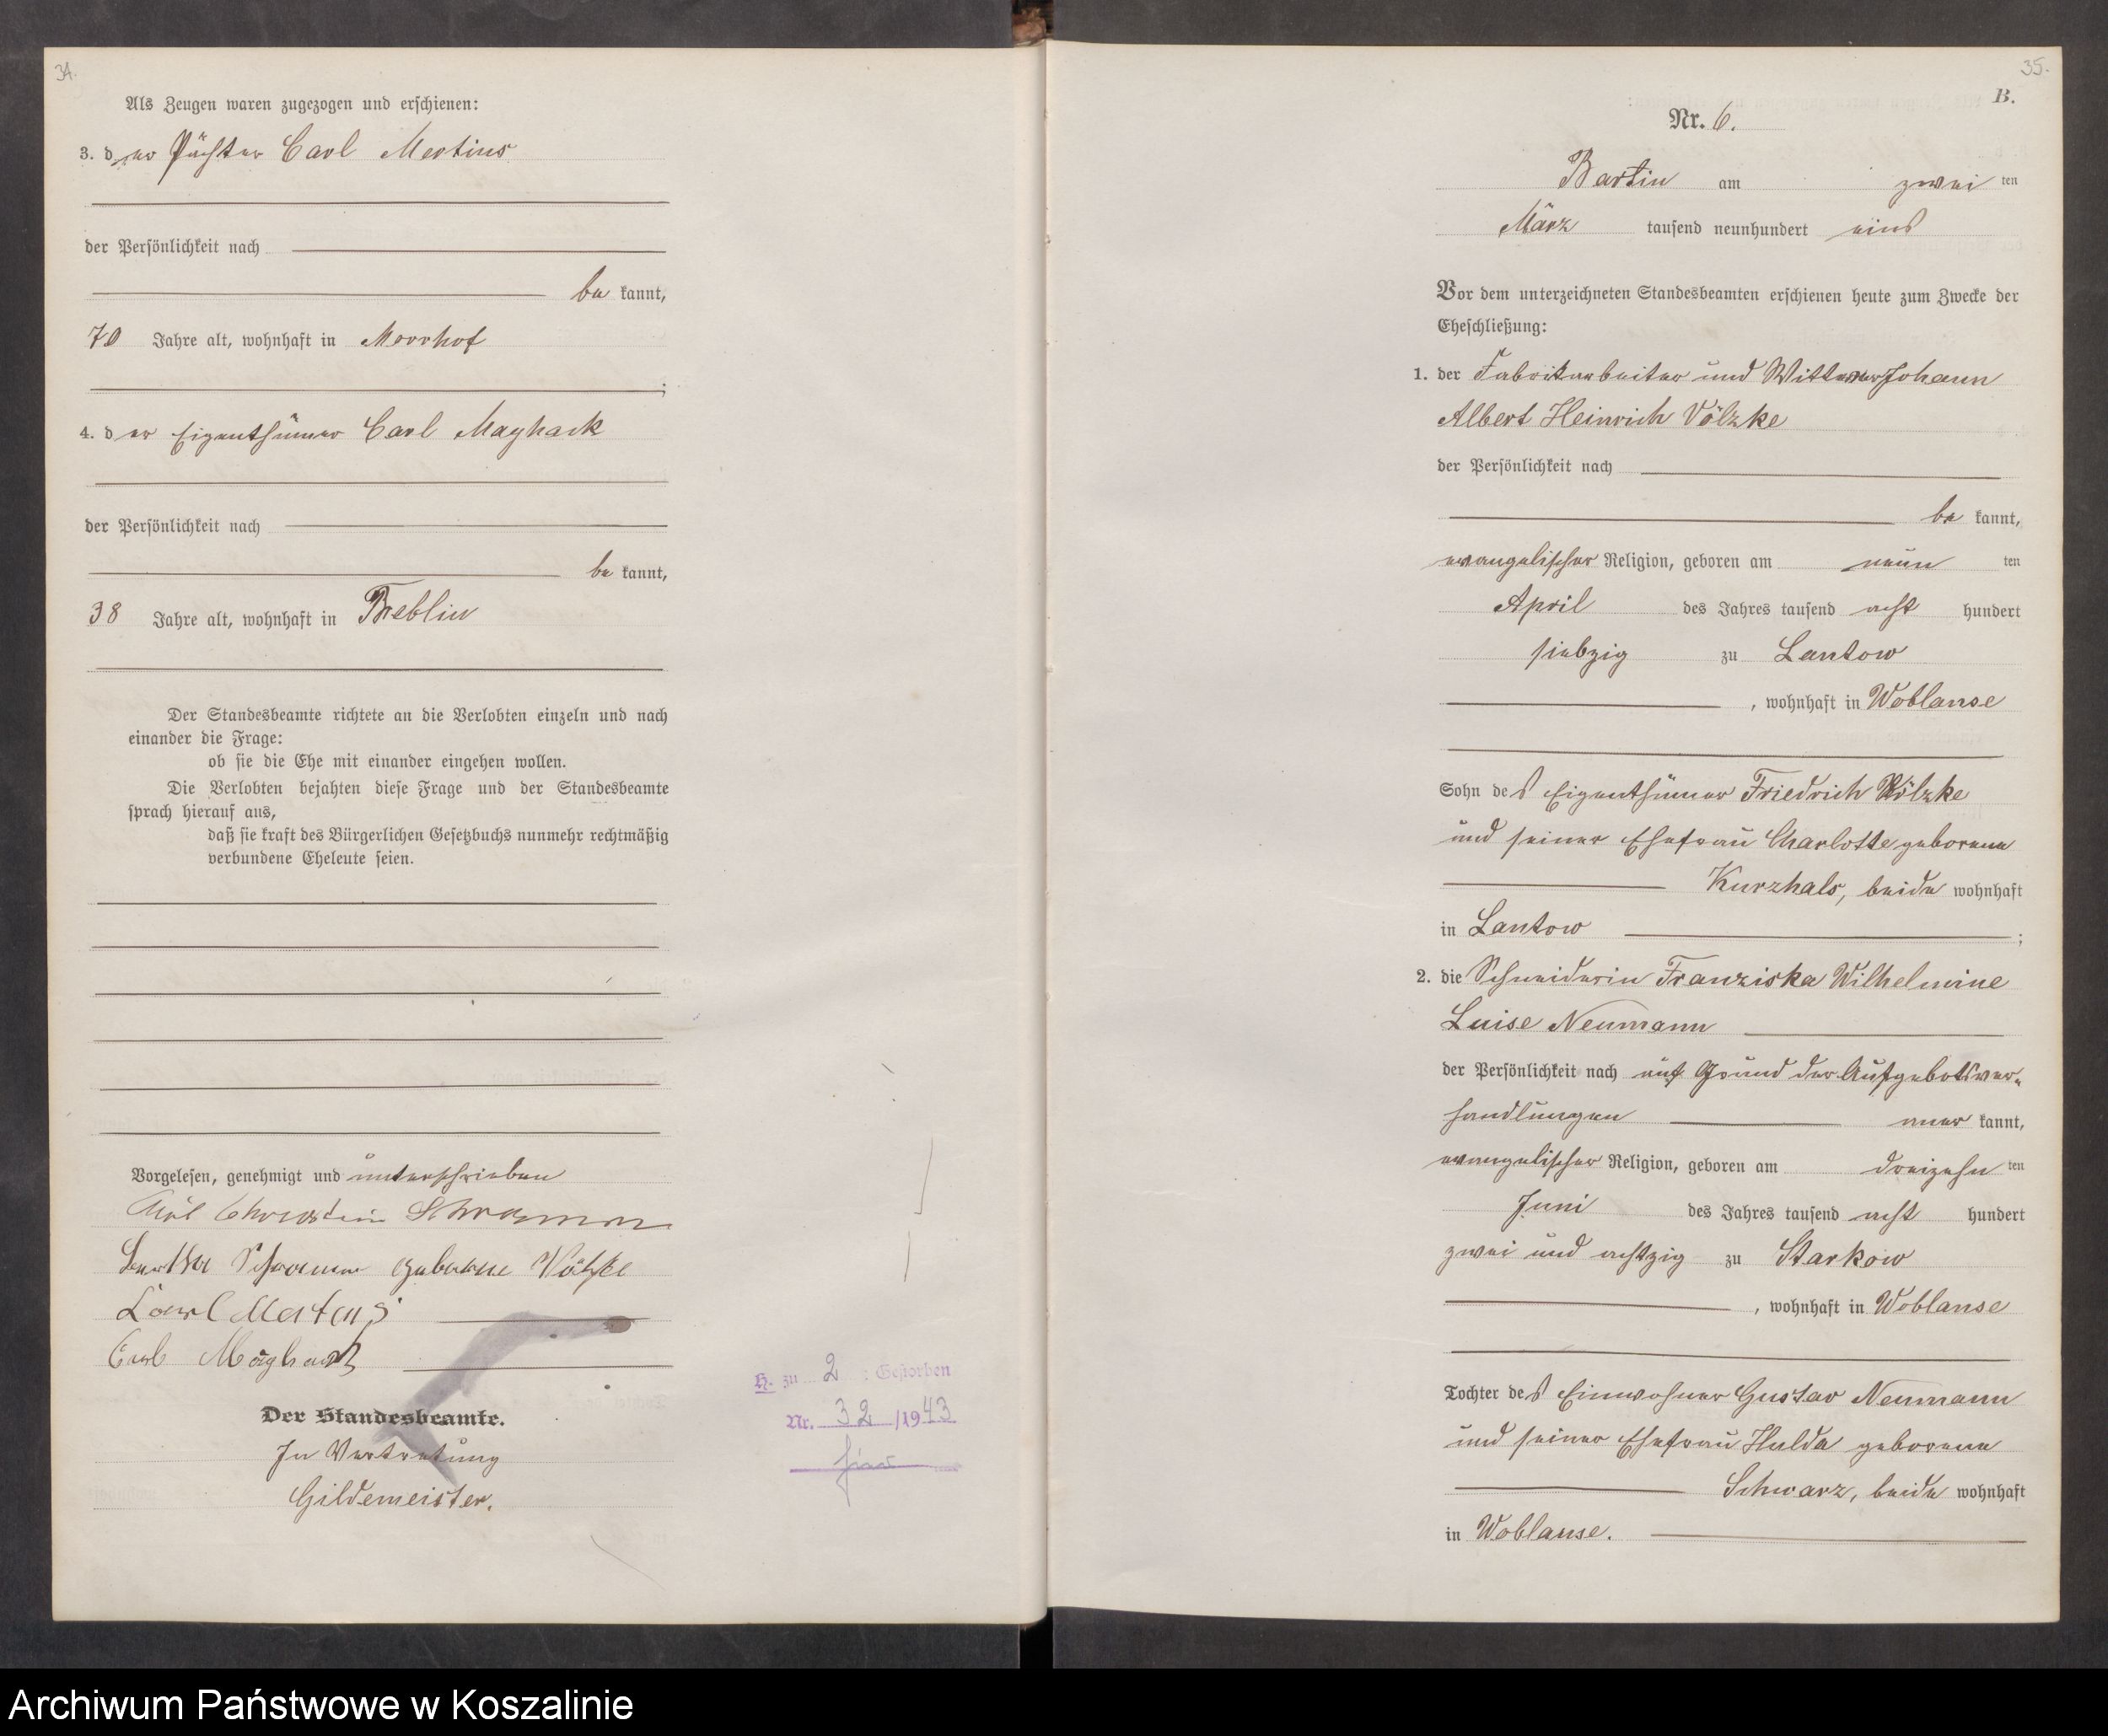 34.
Als Zeugen waren zugezogen und erschienen:
3. der Pächter Carl Mertins
der Persönlichkeit nach
be kannt,
70 Jahre alt, wohnhaft in Moorhof
;
4. der Eigenthümer Carl Mayhack
der Persönlichkeit nach
be kannt,
38 Jahre alt, wohnhaft in Treblin
Der Standesbeamte richtete an die Verlobten einzeln und nach
einander die Frage:
ob sie die Ehe mit einander eingehen wollen.
Die Verlobten bejahten diese Frage und der Standesbeamte
sprach hierauf aus,
daß sie kraft des Bürgerlichen Gesetzbuchs nunmehr rechtmäßig
verbundene Eheleute seien.
Vorgelesen, genehmigt und unterschrieben
Schramm
Bertha Schramm geborene Völzke
Carl Mertens
Carl Maghack
Der Standesbeamte.
In Vertretung
Gildemeister.
H. zu 2 : Gestorben
Nr. 32 /1943
hier
35.
B.
Nr. 6.
Bartin am zwei ten
März tausend neunhundert eins
Vor dem unterzeichneten Standesbeamten erschienen heute zum Zwecke der
Eheschließung:
1. der Fabrikarbeiter und Wittwer Johann
Albert Heinrich Völzke
der Persönlichkeit nach
be kannt,
evangelischer Religion, geboren am neun ten
April des Jahres tausend acht hundert
siebzig zu Lantow
, wohnhaft in Woblanse
Sohn des Eigenthümer Friedrich Völzke
und seiner Ehefrau Charlotte geborene
Kurzhals, beide wohnhaft
in Lantow ;
2. die Schneiderin Franziska Wilhelmine
Luise Neumann
der Persönlichkeit nach auf Grund der Aufgebotsver-
handlungen aner kannt,
evangelischer Religion, geboren am dreizehn ten
Juni des Jahres tausend acht hundert
zwei und achtzig zu Starkow
, wohnhaft in Woblanse
Tochter des Einwohner Gustav Neumann
und seiner Ehefrau Hulda geborene
Schwarz, beide wohnhaft
in Woblanse.
Archiwum Państwowe w Koszalinie